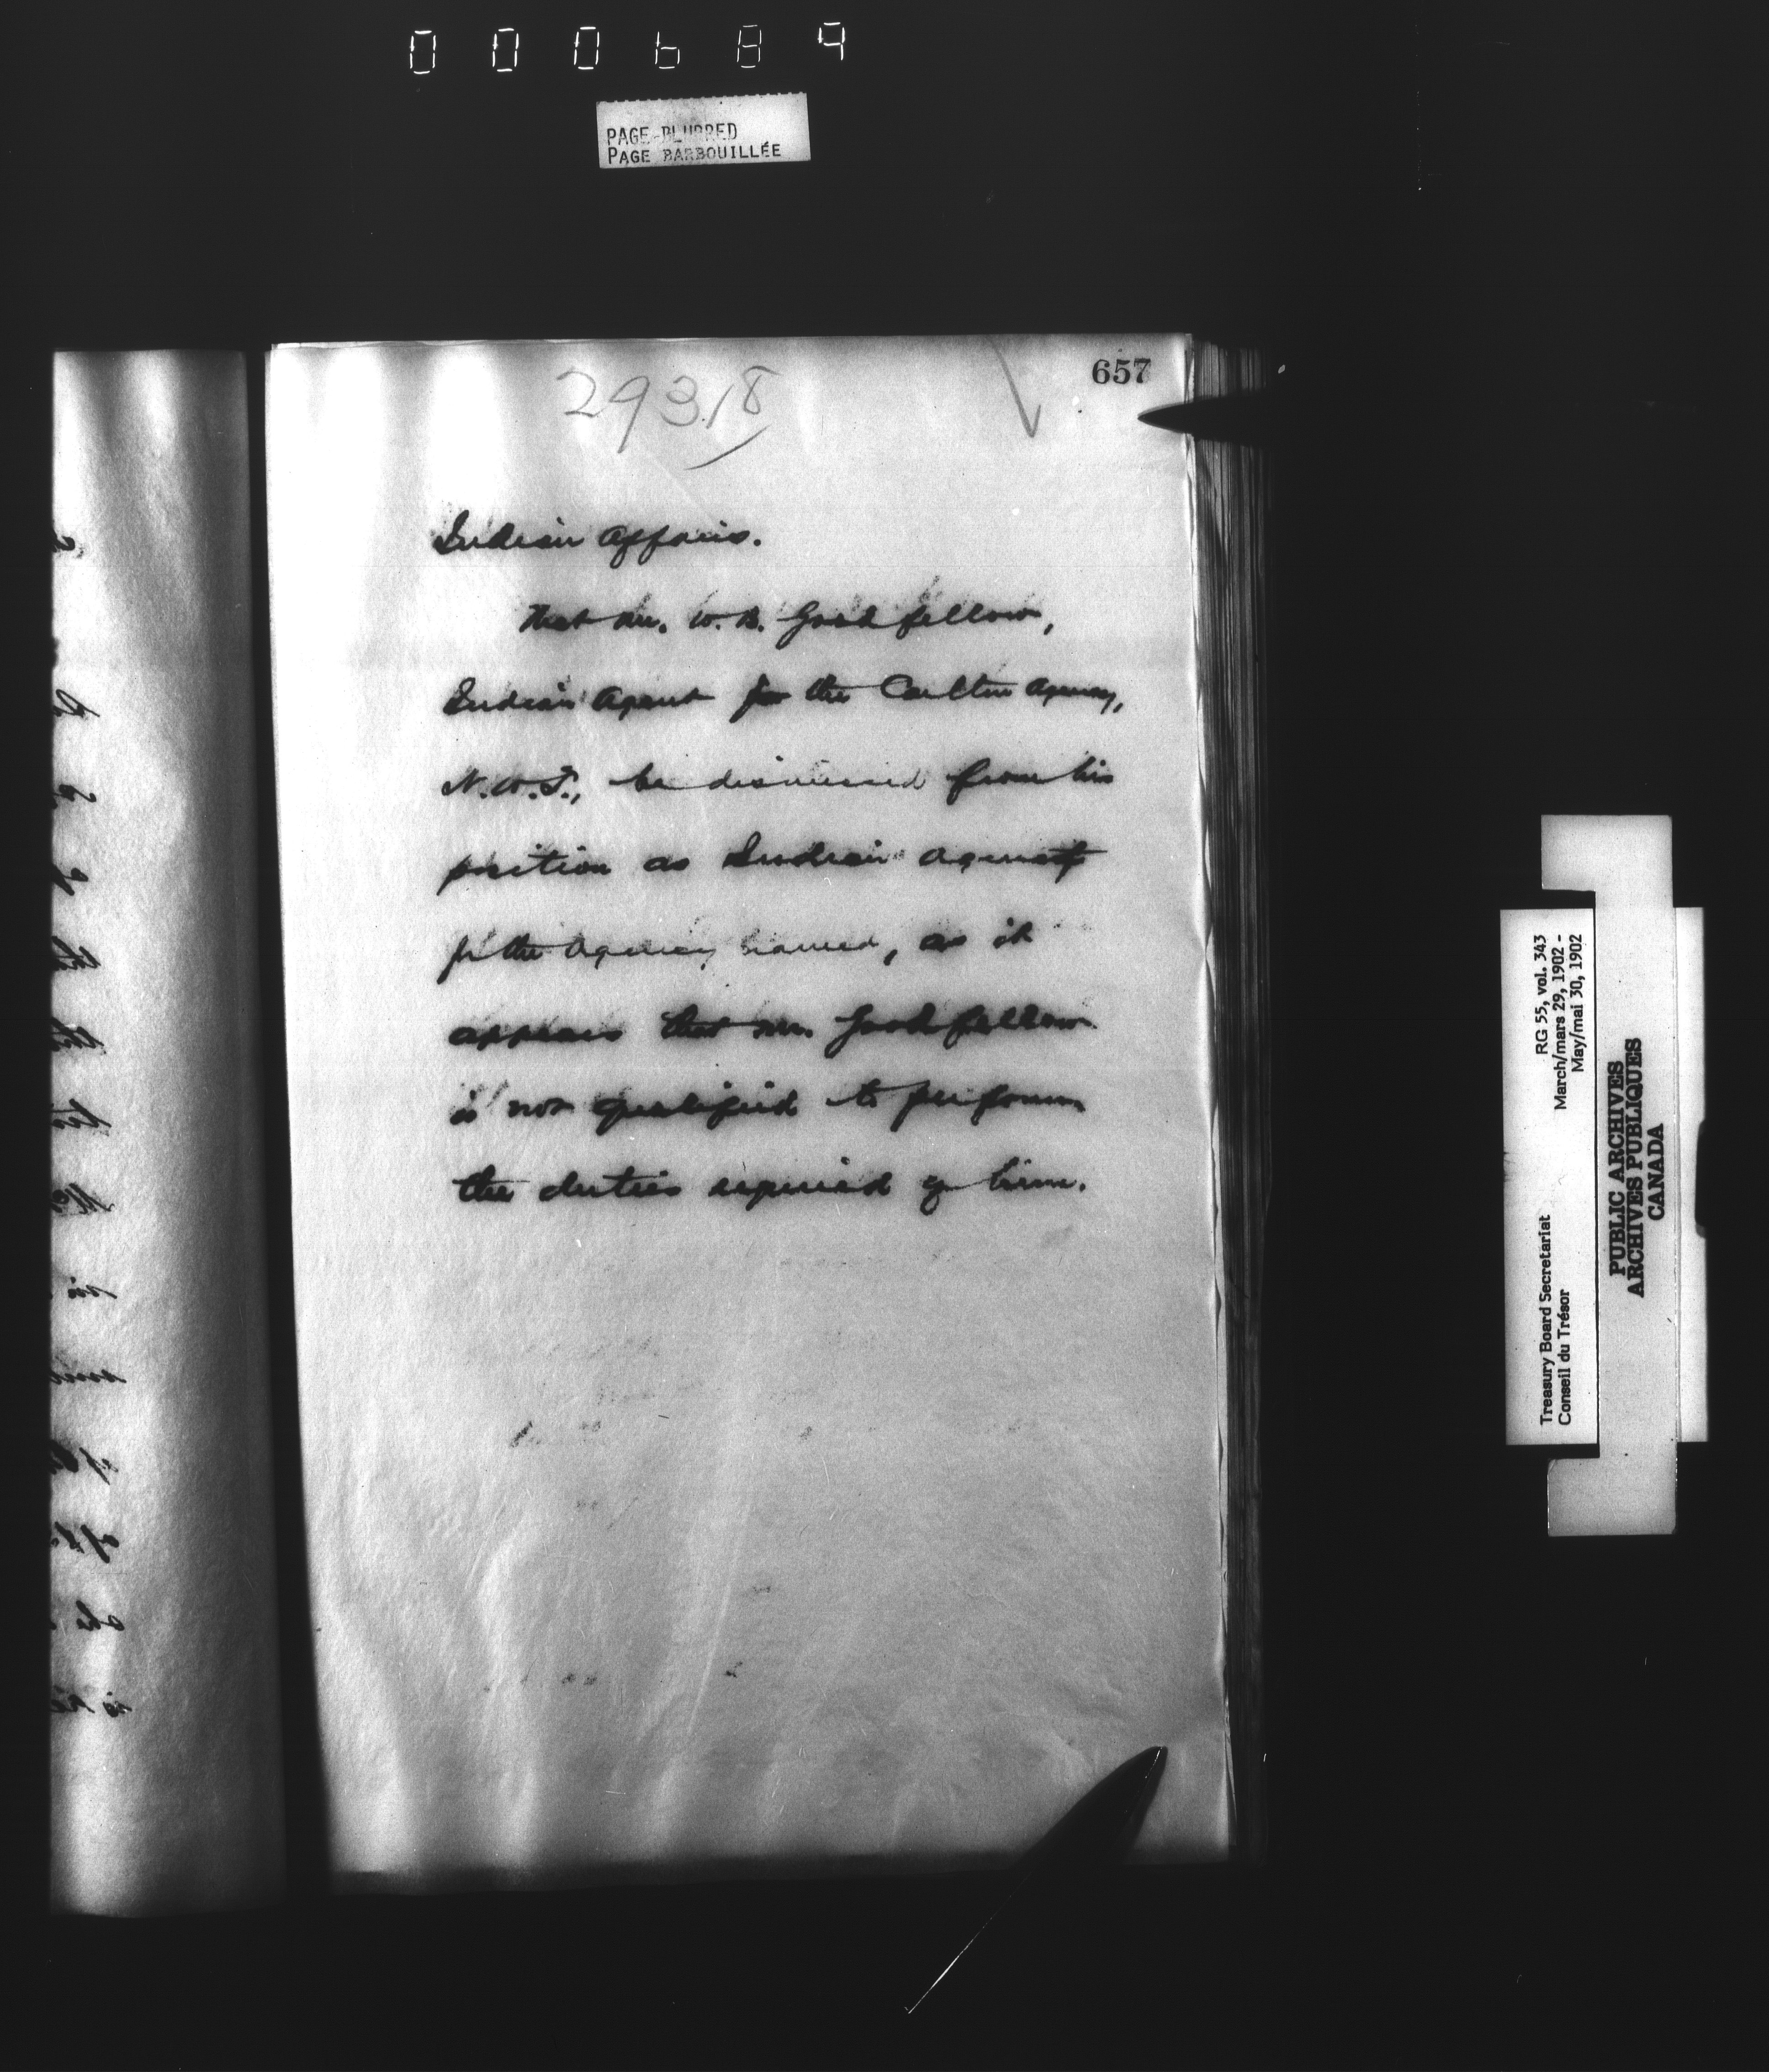 000689
PAGE BLURRED
PAGE BARBOUILLÉE
657
29318
Indian Affairs.
That Mr. W. B. Goodfellow,
Indian Agent for the Carlton Agency,
N.W.T., be dismissed from his
position as Indian Agent
for the Agency named, as it
appears that Mr. Goodfellow
is not qualified to perform
the duties required of him.
Treasury Board Secretariat
Conseil du Trésor
RG 55, vol. 343
March/mars 29, 1902 -
May/mai 30, 1902
PUBLIC ARCHIVES
ARCHIVES PUBLIQUES
CANADA